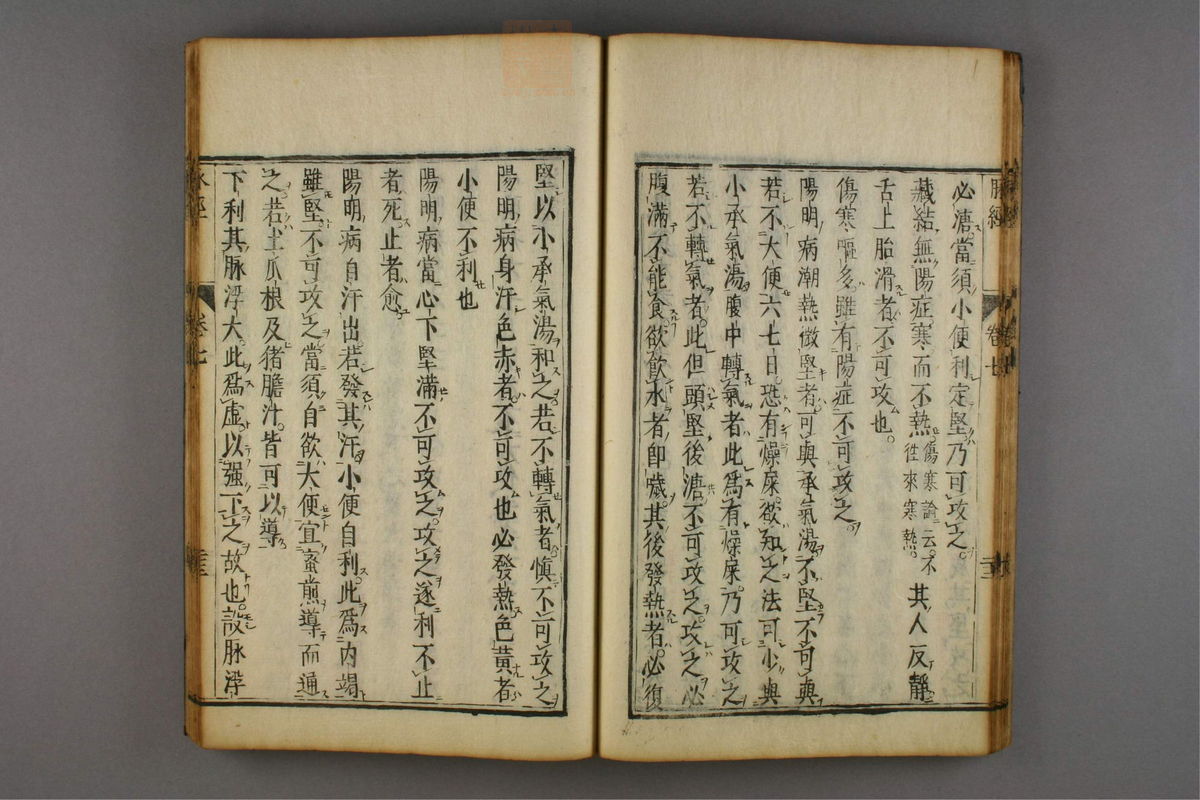 脉經
卷七
必溏當須小便利定堅乃可攻之
藏結無陽症寒而不熱傷寒論云不往來寒熱其人反靜
舌上胎滑者不可攻也
傷寒嘔多雖有陽症不可攻之
陽明病潮熱微堅者可與承氣湯不堅不可與
若不大便六七日恐有燥屎欲知之法可少與
小承氣湯腹中轉氣者此爲有燥屎乃可攻之
若不轉氣者此但頭堅後溏不可攻之攻之必
腹滿不能食欲飲水者即噦其後發熱者必復
堅以小承氣湯和之若不轉氣者慎不可攻之
陽明病身汗色赤者不可攻也必發熱色黃者
小便不利也
陽明病當心下堅滿不可攻之攻之遂利不止
者死止者愈
陽明病自汗出若發其汗小便自利此爲内竭
雖堅不可攻之當須自欲大便宜蜜煎導而通
之若土瓜根及猪膽汁皆可以導
下利其脉浮大此爲虛以强下之故也設脉浮
卷七